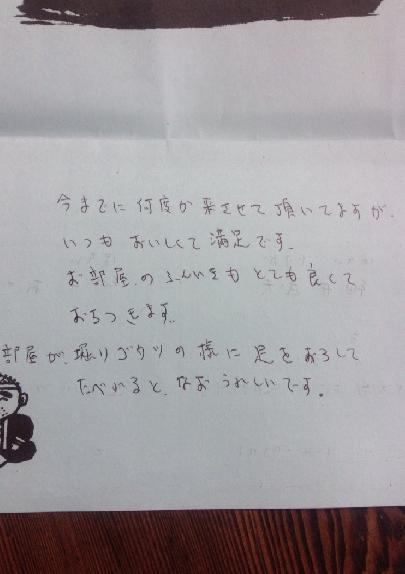 今までに何度か来させて頂いてますが、
いつもおいしくて満足です。
お部屋のふんいきもとても良くて
おちつきます。
部屋が、堀りゴタツの様に足をおろして
たべれると、なおうれしいです。